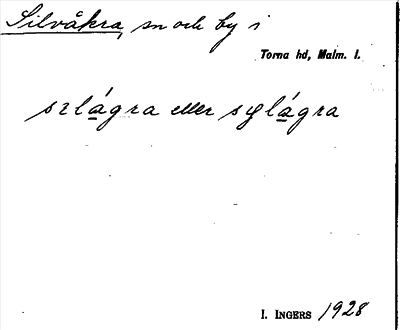 Silvåkra, sn och by i
Torna hd, Malm. l.
szlágra eller sylágra
I. INGERS 1928